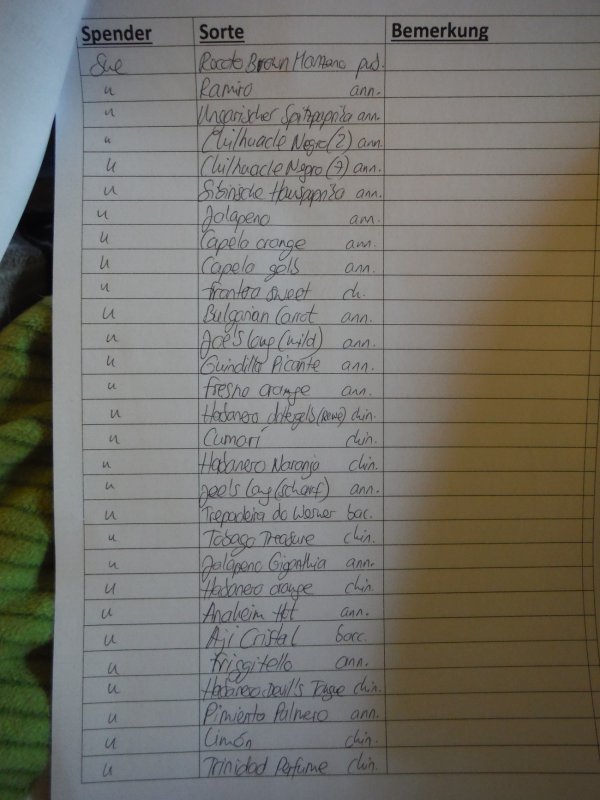 Spender Sorte Bemerkung
Sue Rocoto Brown Manzano pub.
" Ramiro ann.
" Ungarischer Spitzpaprika ann.
" Chilhuacle Negro (2) ann.
" Chilhuacle Negro (7) ann.
" Hauspaprika ann.
" Jalapeno ann.
" Capela orange ann.
" Capela gelb ann.
" Frontera sweet ch.
" Bulgarian Carrot ann.
" Joe's Long (mild) ann.
" Guindilla Picante ann.
" Fresno orange ann.
" Habanero (Rewe) chin.
" Cumarí chin.
" Habanero Naranja chin.
" Joe's Long (scharf) ann.
" Trepadeira do Werner bac.
" Tobago Treasure chin.
" Jalapeno Giganthia ann.
" Habanero orange chin.
" Anaheim Hot ann.
" Aji Cristal bacc.
" Friggitello ann.
" Habanero Devil's Tongue chin.
" Pimiento Palmero ann.
" Limón chin.
" Trinidad Perfume chin.